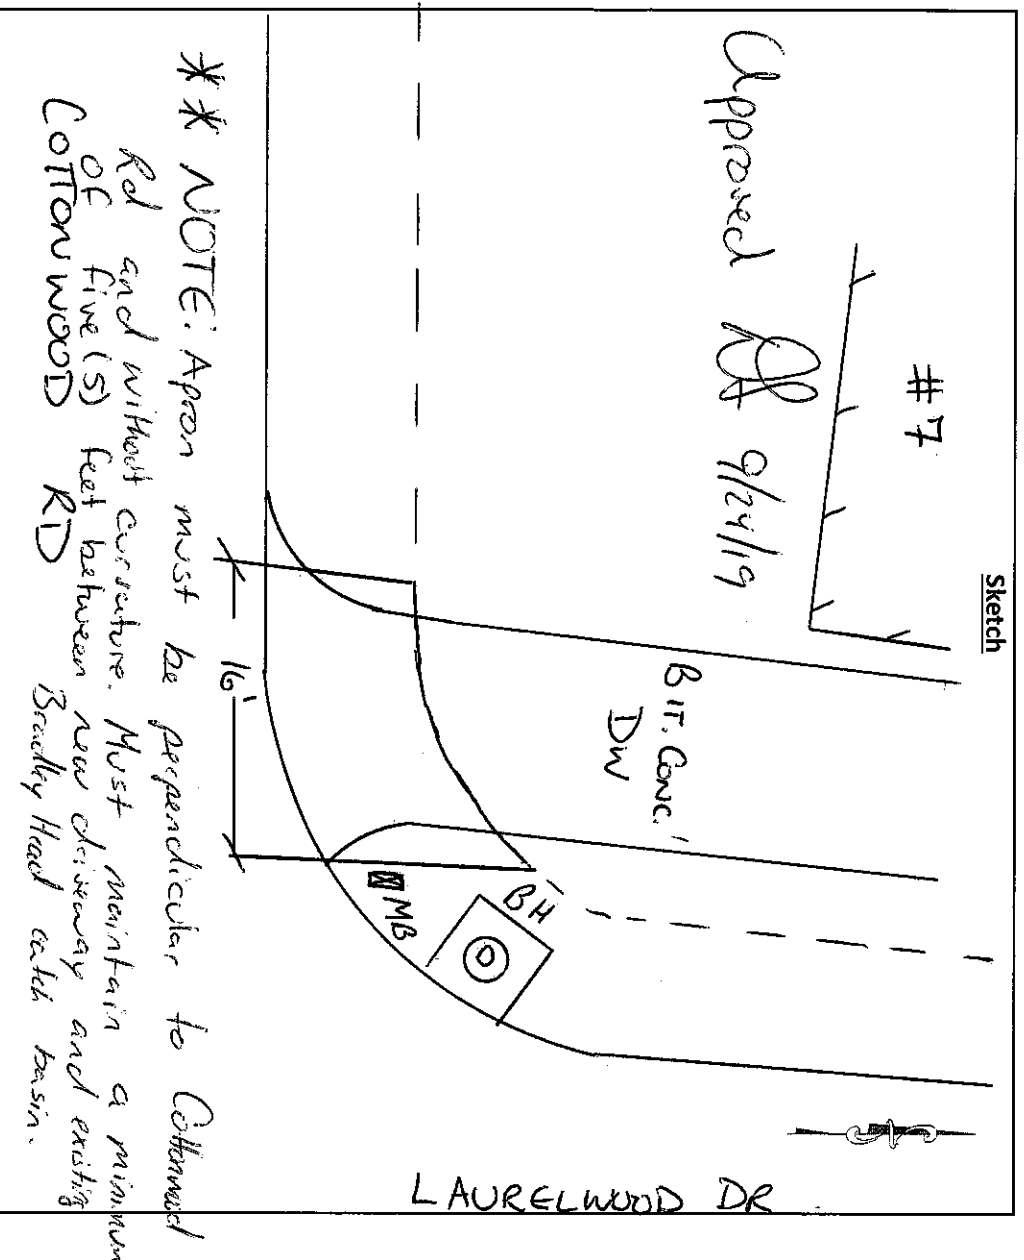 Sketch
#7
Approved 9/24/19
BIT. CONC.
DW
16'
BH
MB
LAURELWOOD DR
** NOTE: Apron must be perpendicular to Cottonwood
Rd and without curvature. Must maintain a minimum
of five (5) feet between new driveway and existing
Bradley Head catch basin.
COTTONWOOD RD